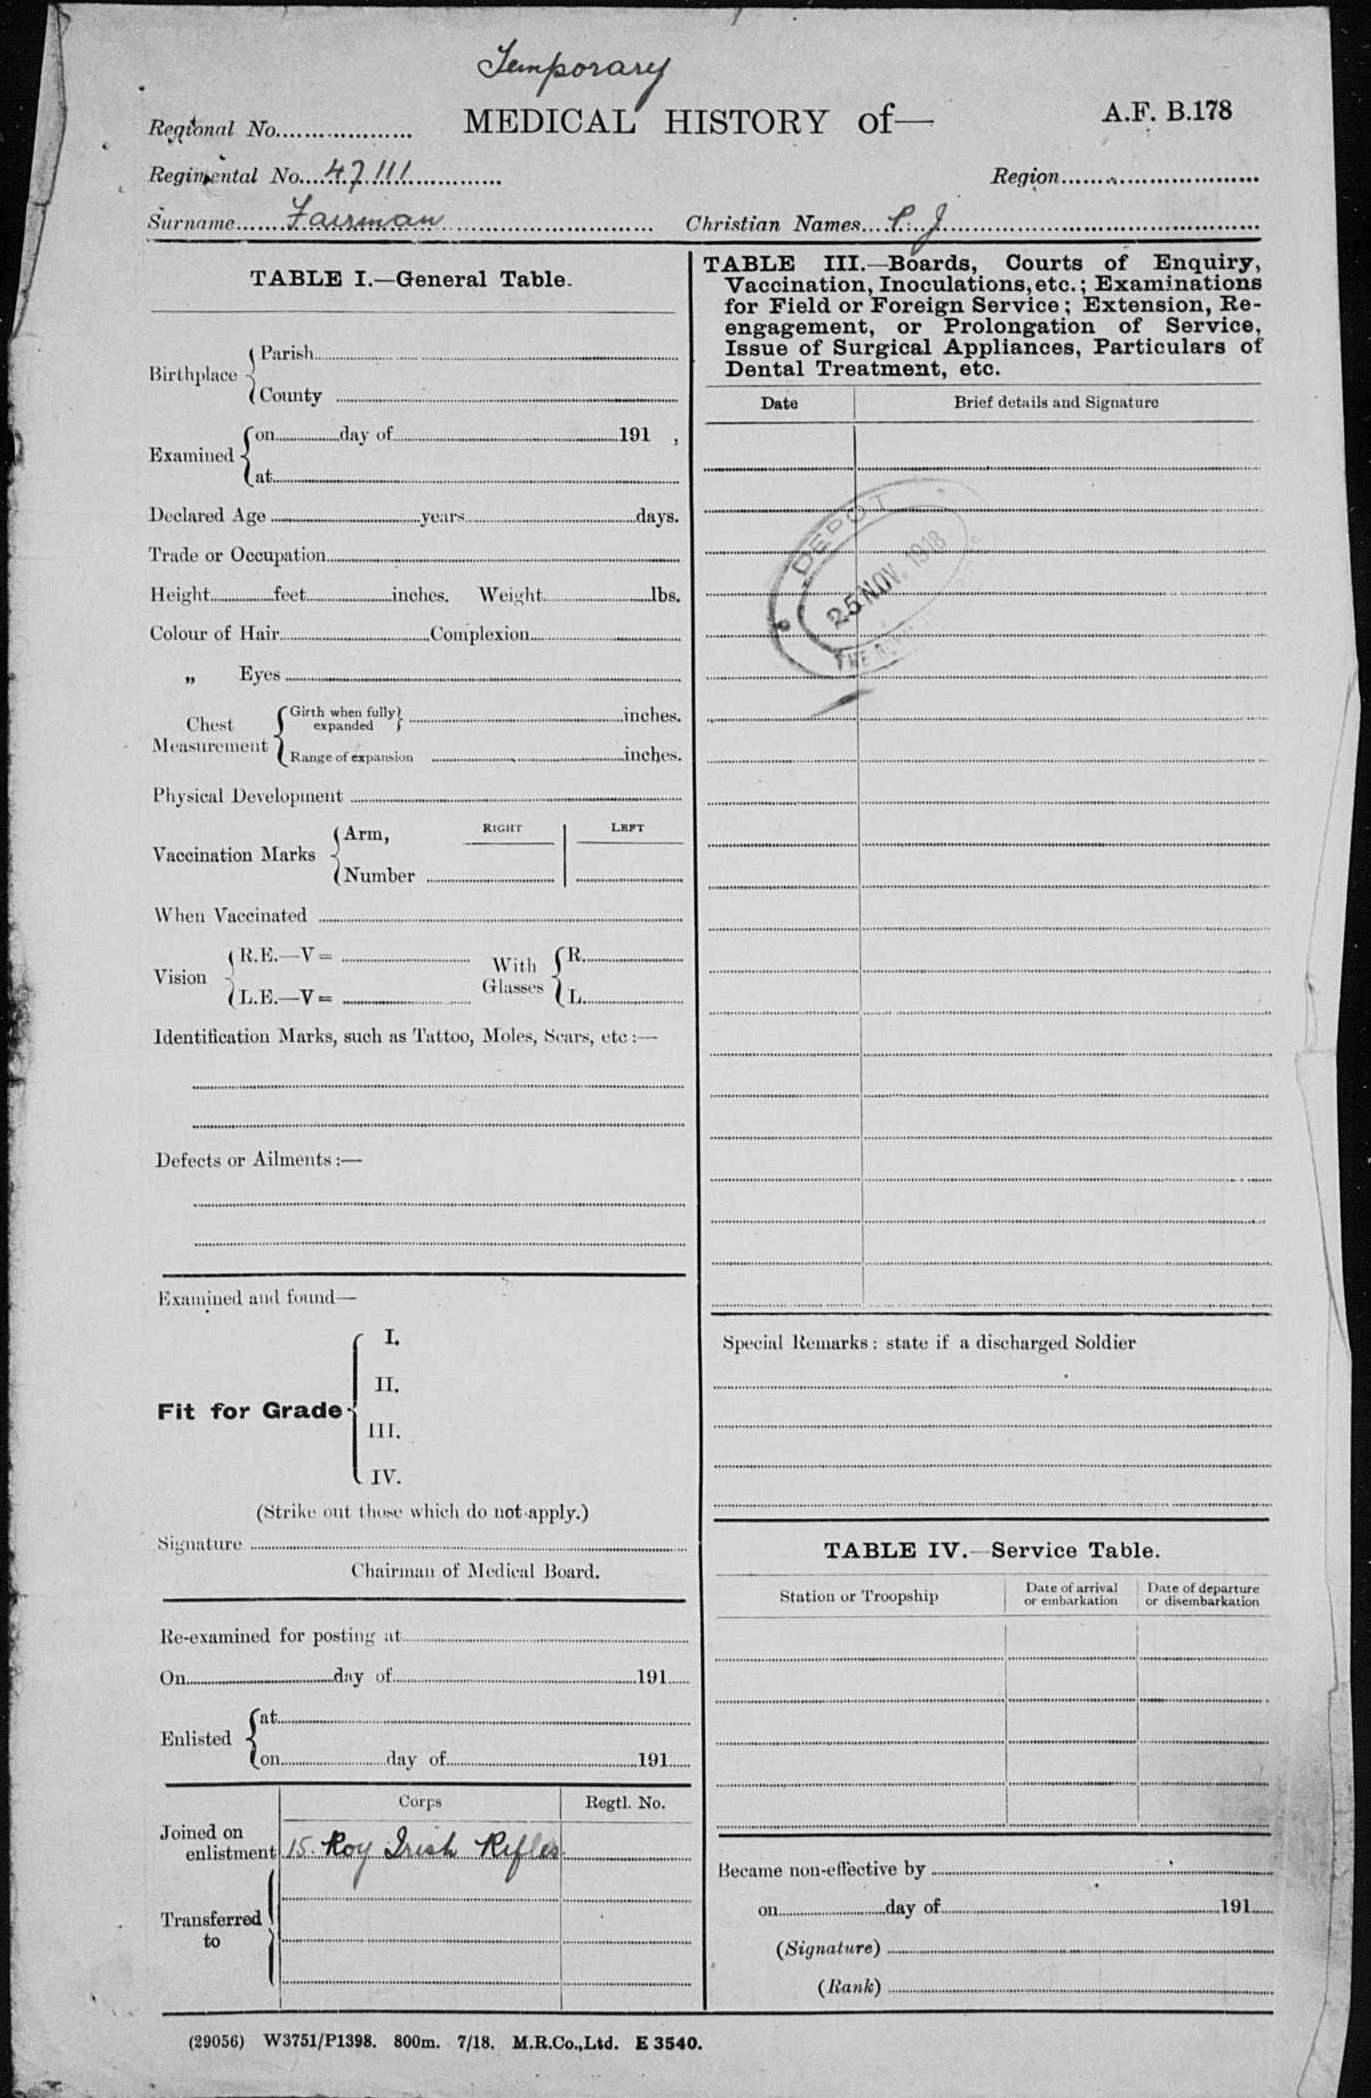 Temporary
MEDICAL HISTORY of—
A.F. B.178
Regional No.
Regimental No. 47111
Region
Surname Fairman
Christian Names P. J
TABLE I.—General Table.
Birthplace
Parish
County
Examined
on day of 191 ,
at
Declared Age years days.
Trade or Occupation
Height feet inches. Weight lbs.
Colour of Hair Complexion
„ Eyes
Chest Measurement
Girth when fully expanded inches.
Range of expansion inches.
Physical Development
Vaccination Marks
Arm, RIGHT LEFT
Number
When Vaccinated
Vision
R.E.—V =
L.E.—V =
With Glasses
R.
L.
Identification Marks, such as Tattoo, Moles, Scars, etc :—
Defects or Ailments :—
Examined and found—
Fit for Grade
I.
II.
III.
IV.
(Strike out those which do not apply.)
Signature
Chairman of Medical Board.
Re-examined for posting at
On day of 191
Enlisted
at
on day of 191
Corps Regtl. No.
Joined on
enlistment 15. Roy Irish Rifles
Transferred
to
TABLE III.—Boards, Courts of Enquiry,
Vaccination, Inoculations, etc. ; Examinations
for Field or Foreign Service ; Extension, Re-
engagement, or Prolongation of Service,
Issue of Surgical Appliances, Particulars of
Dental Treatment, etc.
Date Brief details and Signature
DEPOT
25 NOV. 1918
THE
Special Remarks : state if a discharged Soldier
TABLE IV.—Service Table.
Station or Troopship
Date of arrival
or embarkation
Date of departure
or disembarkation
Became non-effective by
on day of 191
(Signature)
(Rank)
(29056) W3751/P1398. 800m. 7/18. M.R.Co.,Ltd. E 3540.